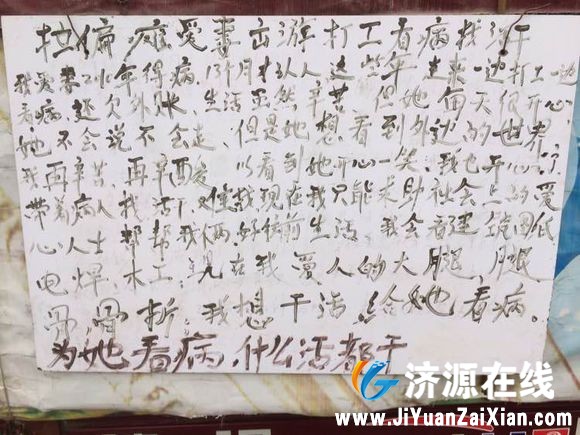 拉偏瘫爱妻出游打工看病找活干
我爱妻2016年得病.13个月才认人.这些年走来一边打工一边
看病.还欠外账、生活虽然辛苦 但她每天很开心.
她不会说不会走、但是她想看到外边的世界.
我再辛苦 再辛酸 以看到她开心一笑.我也开心.
带着病人找活 现在我只能求助社会上的爱
心人士 帮帮我俩.好往前生活.我会
电焊、木工.现在我爱人的大腿 腿
骨骨折.我想干活给她看病.
为她看病.什么活都干
济源在线
www.JiYuanZaiXian.com